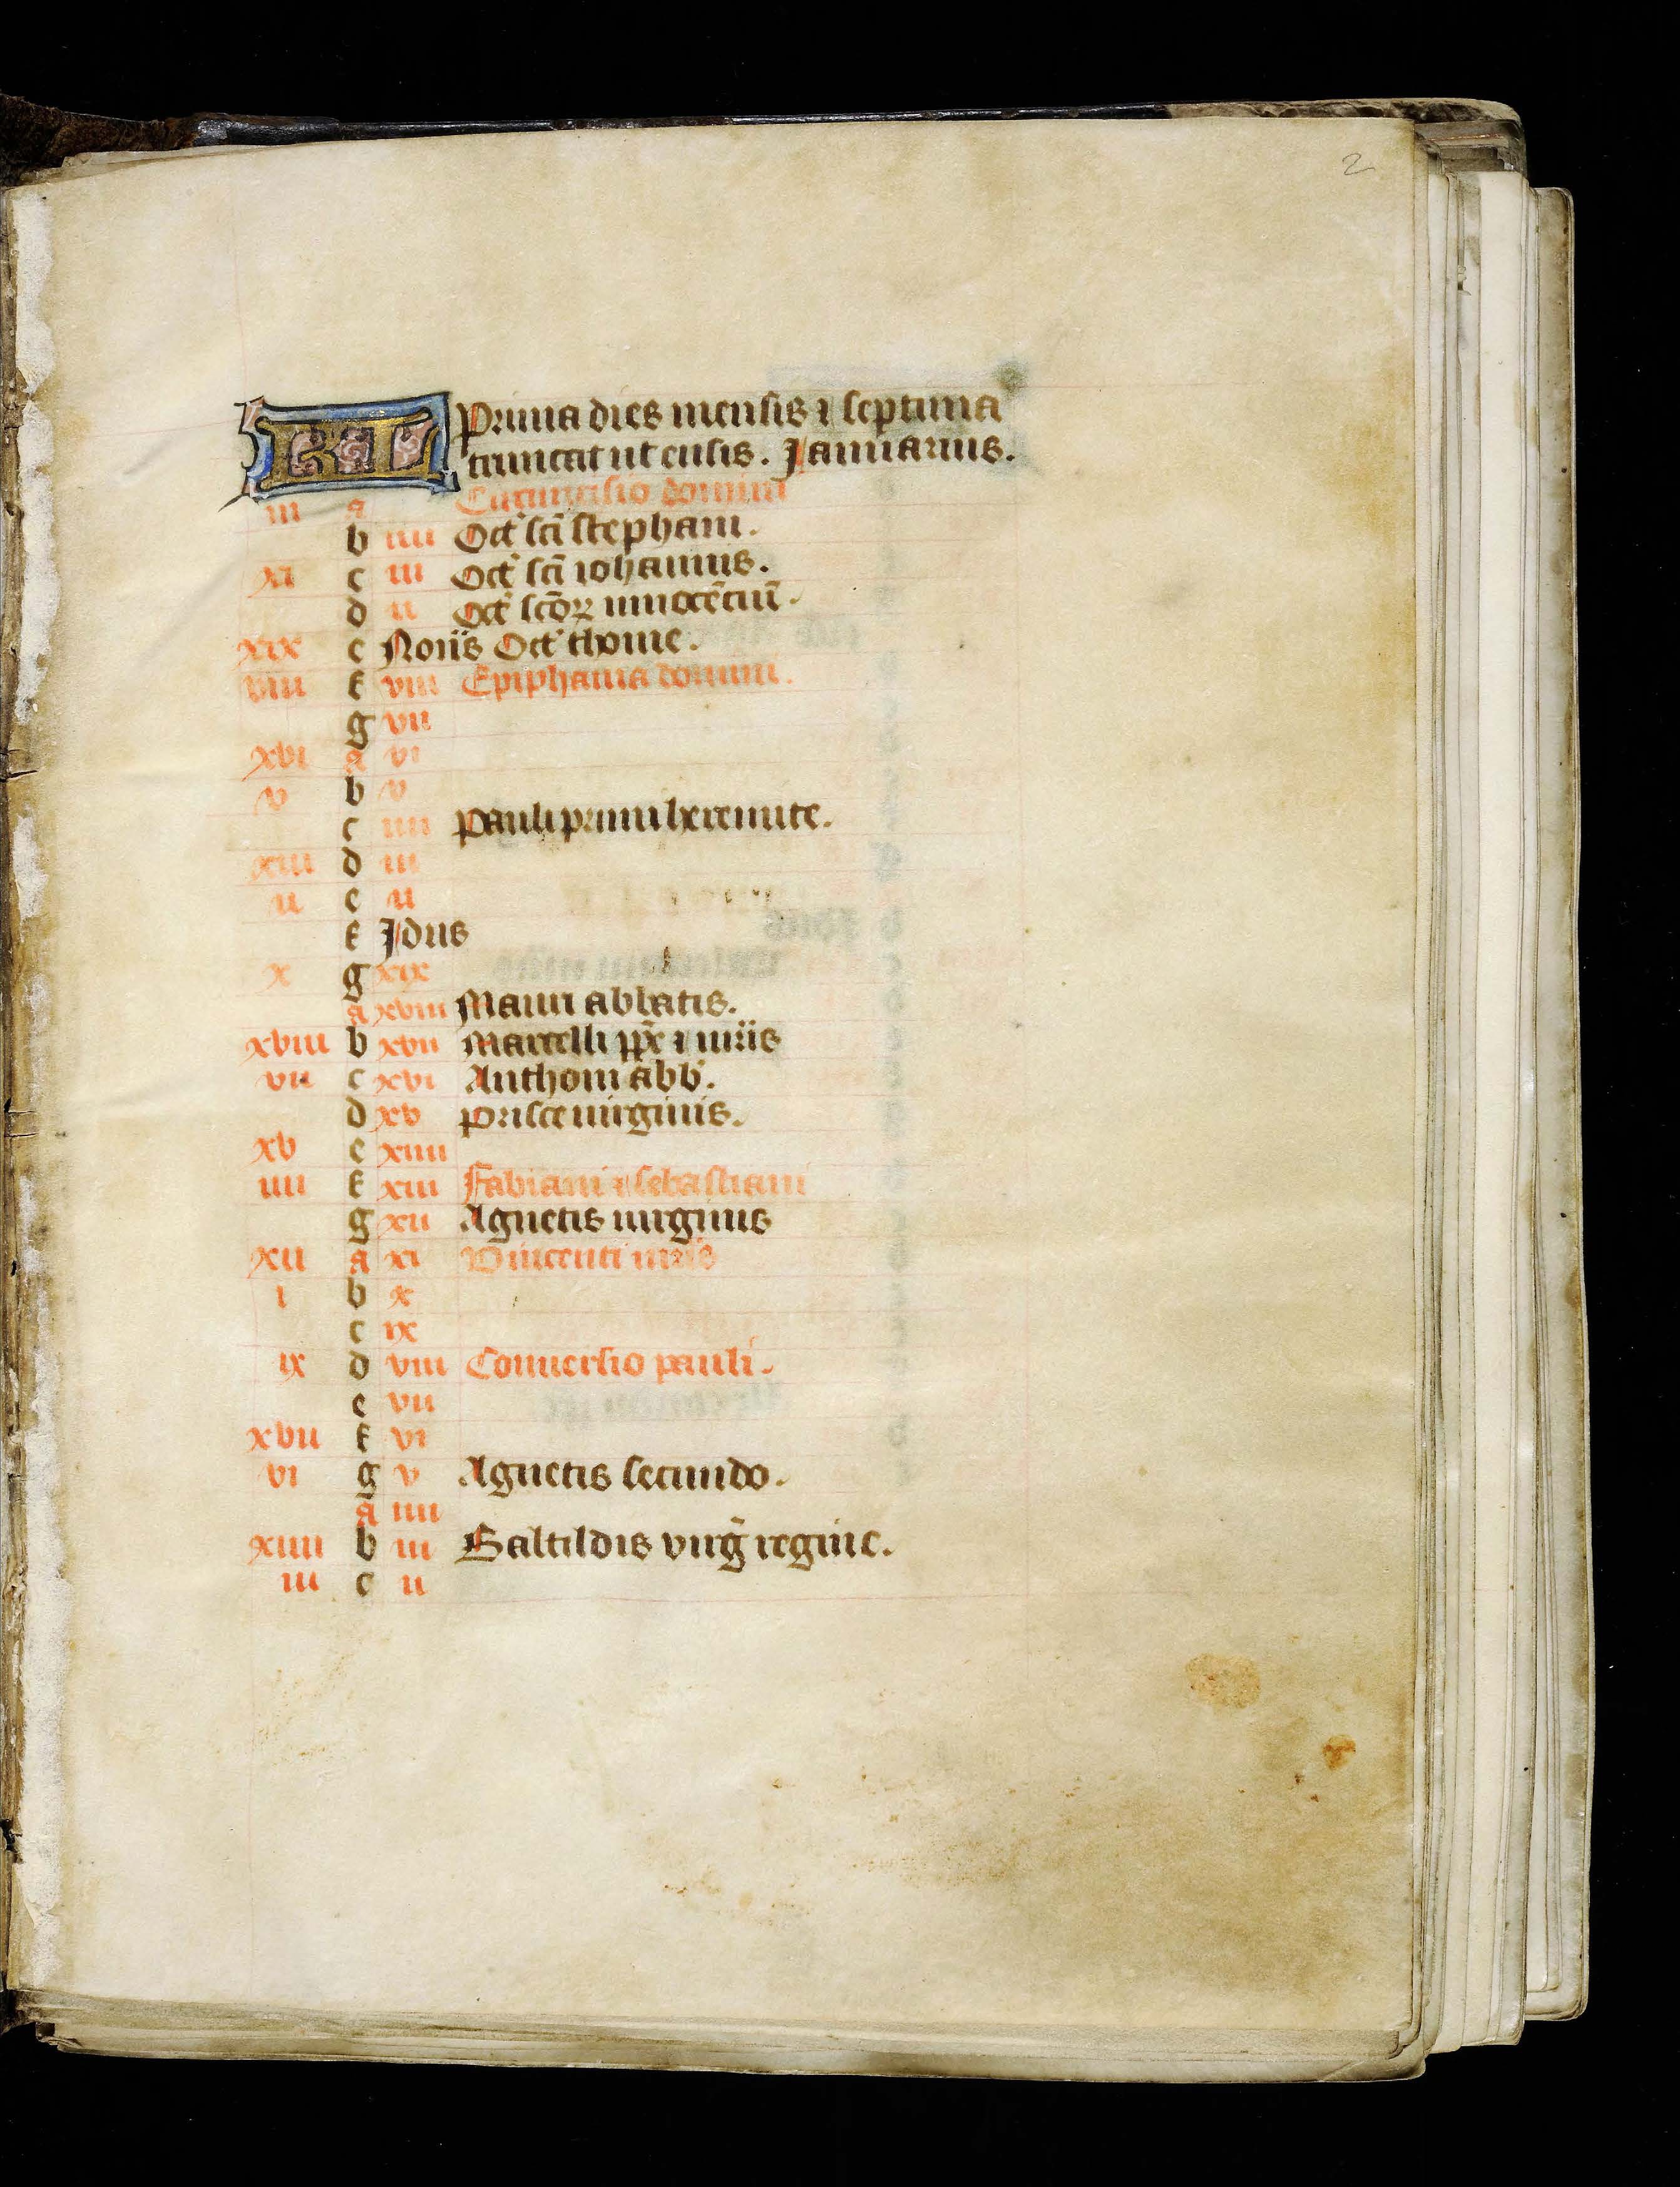 2
KL Prima dies mensis ⁊ septima
truncat ut ensis. Januarius.
iii a Circumcisio domini
b iiii Oct' sci stephani.
xi c iii Oct' sci iohannis.
d ii Oct' scōꝝ innocētiū.
xix e Noñis Oct' thome.
viii f viii Epiphania domini.
g vii
xvi a vi
v b v
c iiii Pauli primi heremite.
xiii d iii
ii e ii
f Jdus
x g xix
a xviii Mauri abbatis.
xviii b xvii Marcelli pp̄e ⁊ mr̄is
vii c xvi Anthoni abb'.
d xv Prisce uirginis.
xv e xiiii
iiii f xiii Fabiani ⁊ sebastiani
g xii Agnetis uirginis
xii a xi Vincenti mr̄is
i b x
c ix
ix d viii Conuersio pauli.
e vii
xvii f vi
vi g v Agnetis secundo.
a iiii
xiiii b iii Baltildis virḡ regine.
iii c ii